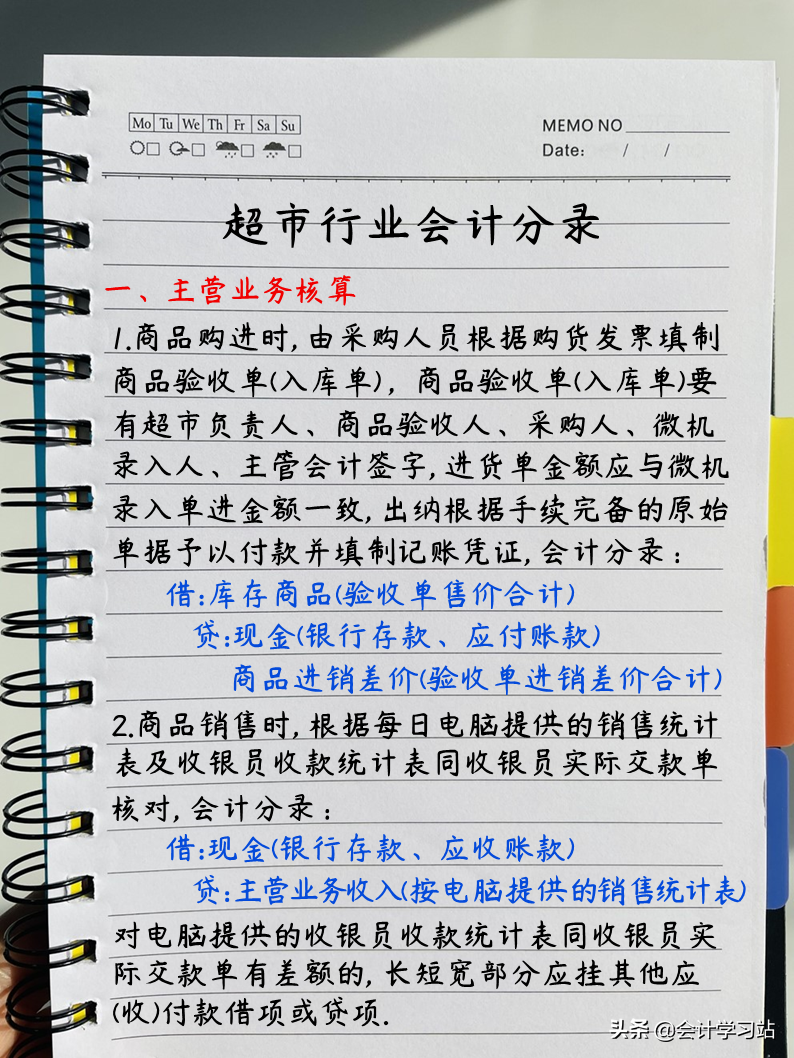 Mo Tu We Th Fr Sa Su
MEMO NO
Date: / /
超市行业会计分录
一、主营业务核算
1.商品购进时,由采购人员根据购货发票填制
商品验收单(入库单)，商品验收单(入库单)要
有超市负责人、商品验收人、采购人、微机
录入人、主管会计签字,进货单金额应与微机
录入单进金额一致,出纳根据手续完备的原始
单据予以付款并填制记账凭证,会计分录：
借:库存商品(验收单售价合计)
贷:现金(银行存款、应付账款)
商品进销差价(验收单进销差价合计)
2.商品销售时,根据每日电脑提供的销售统计
表及收银员收款统计表同收银员实际交款单
核对,会计分录：
借:现金(银行存款、应收账款)
贷:主营业务收入(按电脑提供的销售统计表)
对电脑提供的收银员收款统计表同收银员实
际交款单有差额的,长短宽部分应挂其他应
(收)付款借项或贷项.
头条 @会计学习站